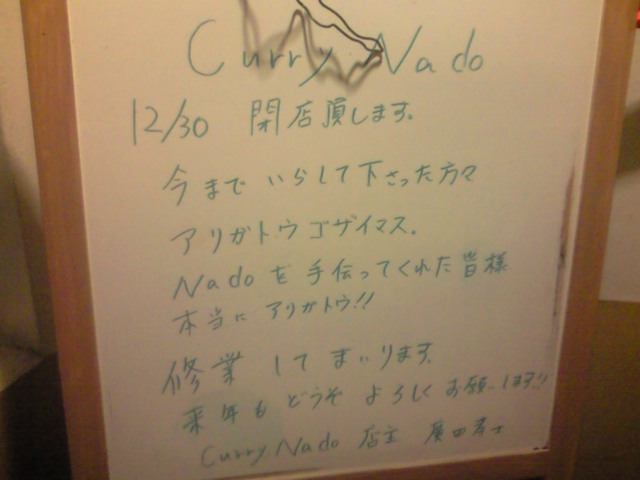 Curry Nado
12/30 閉店頂します。
今まで いらして下さった方々
アリガトウゴザイマス.
Nadoを手伝ってくれた皆様
本当に アリガトウ!!
修業 してまいります.
来年も どうぞ よろしく お願いします!!
Curry Nado 店主 廣田